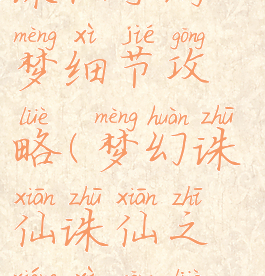 mèng xì jié gōng
梦细节攻
lüè mèng huàn zhū
略(梦幻诛
xiān zhū xiān zhī
仙诛仙之